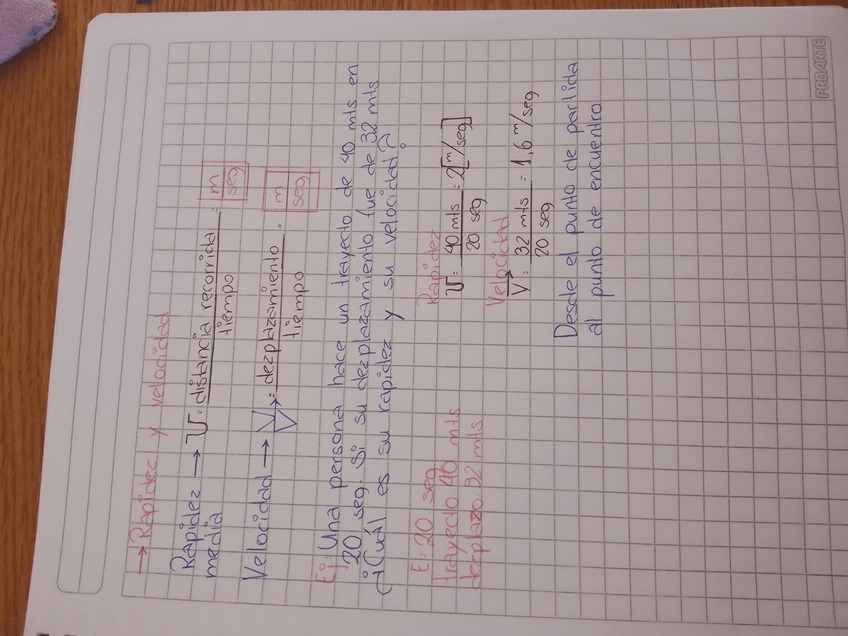 → Rapidez y velocidad
Rapidez → V = distancia recorrida = m
media tiempo seg
Velocidad → V = dezplazamiento = m
tiempo seg
Ej: Una persona hace un trayecto de 40 mts en
20 seg. Si su dezplazamiento fue de 32 mts
¿Cuál es su rapidez y su velocidad?
E: 20 seg
trayecto 40 mts
dezplazo 32 mts
Rapidez
V = 40 mts = 2 [m/seg]
20 seg
Velocidad
V = 32 mts = 1,6 m/seg
20 seg
Desde el punto de partida
al punto de encuentro
PROARTE